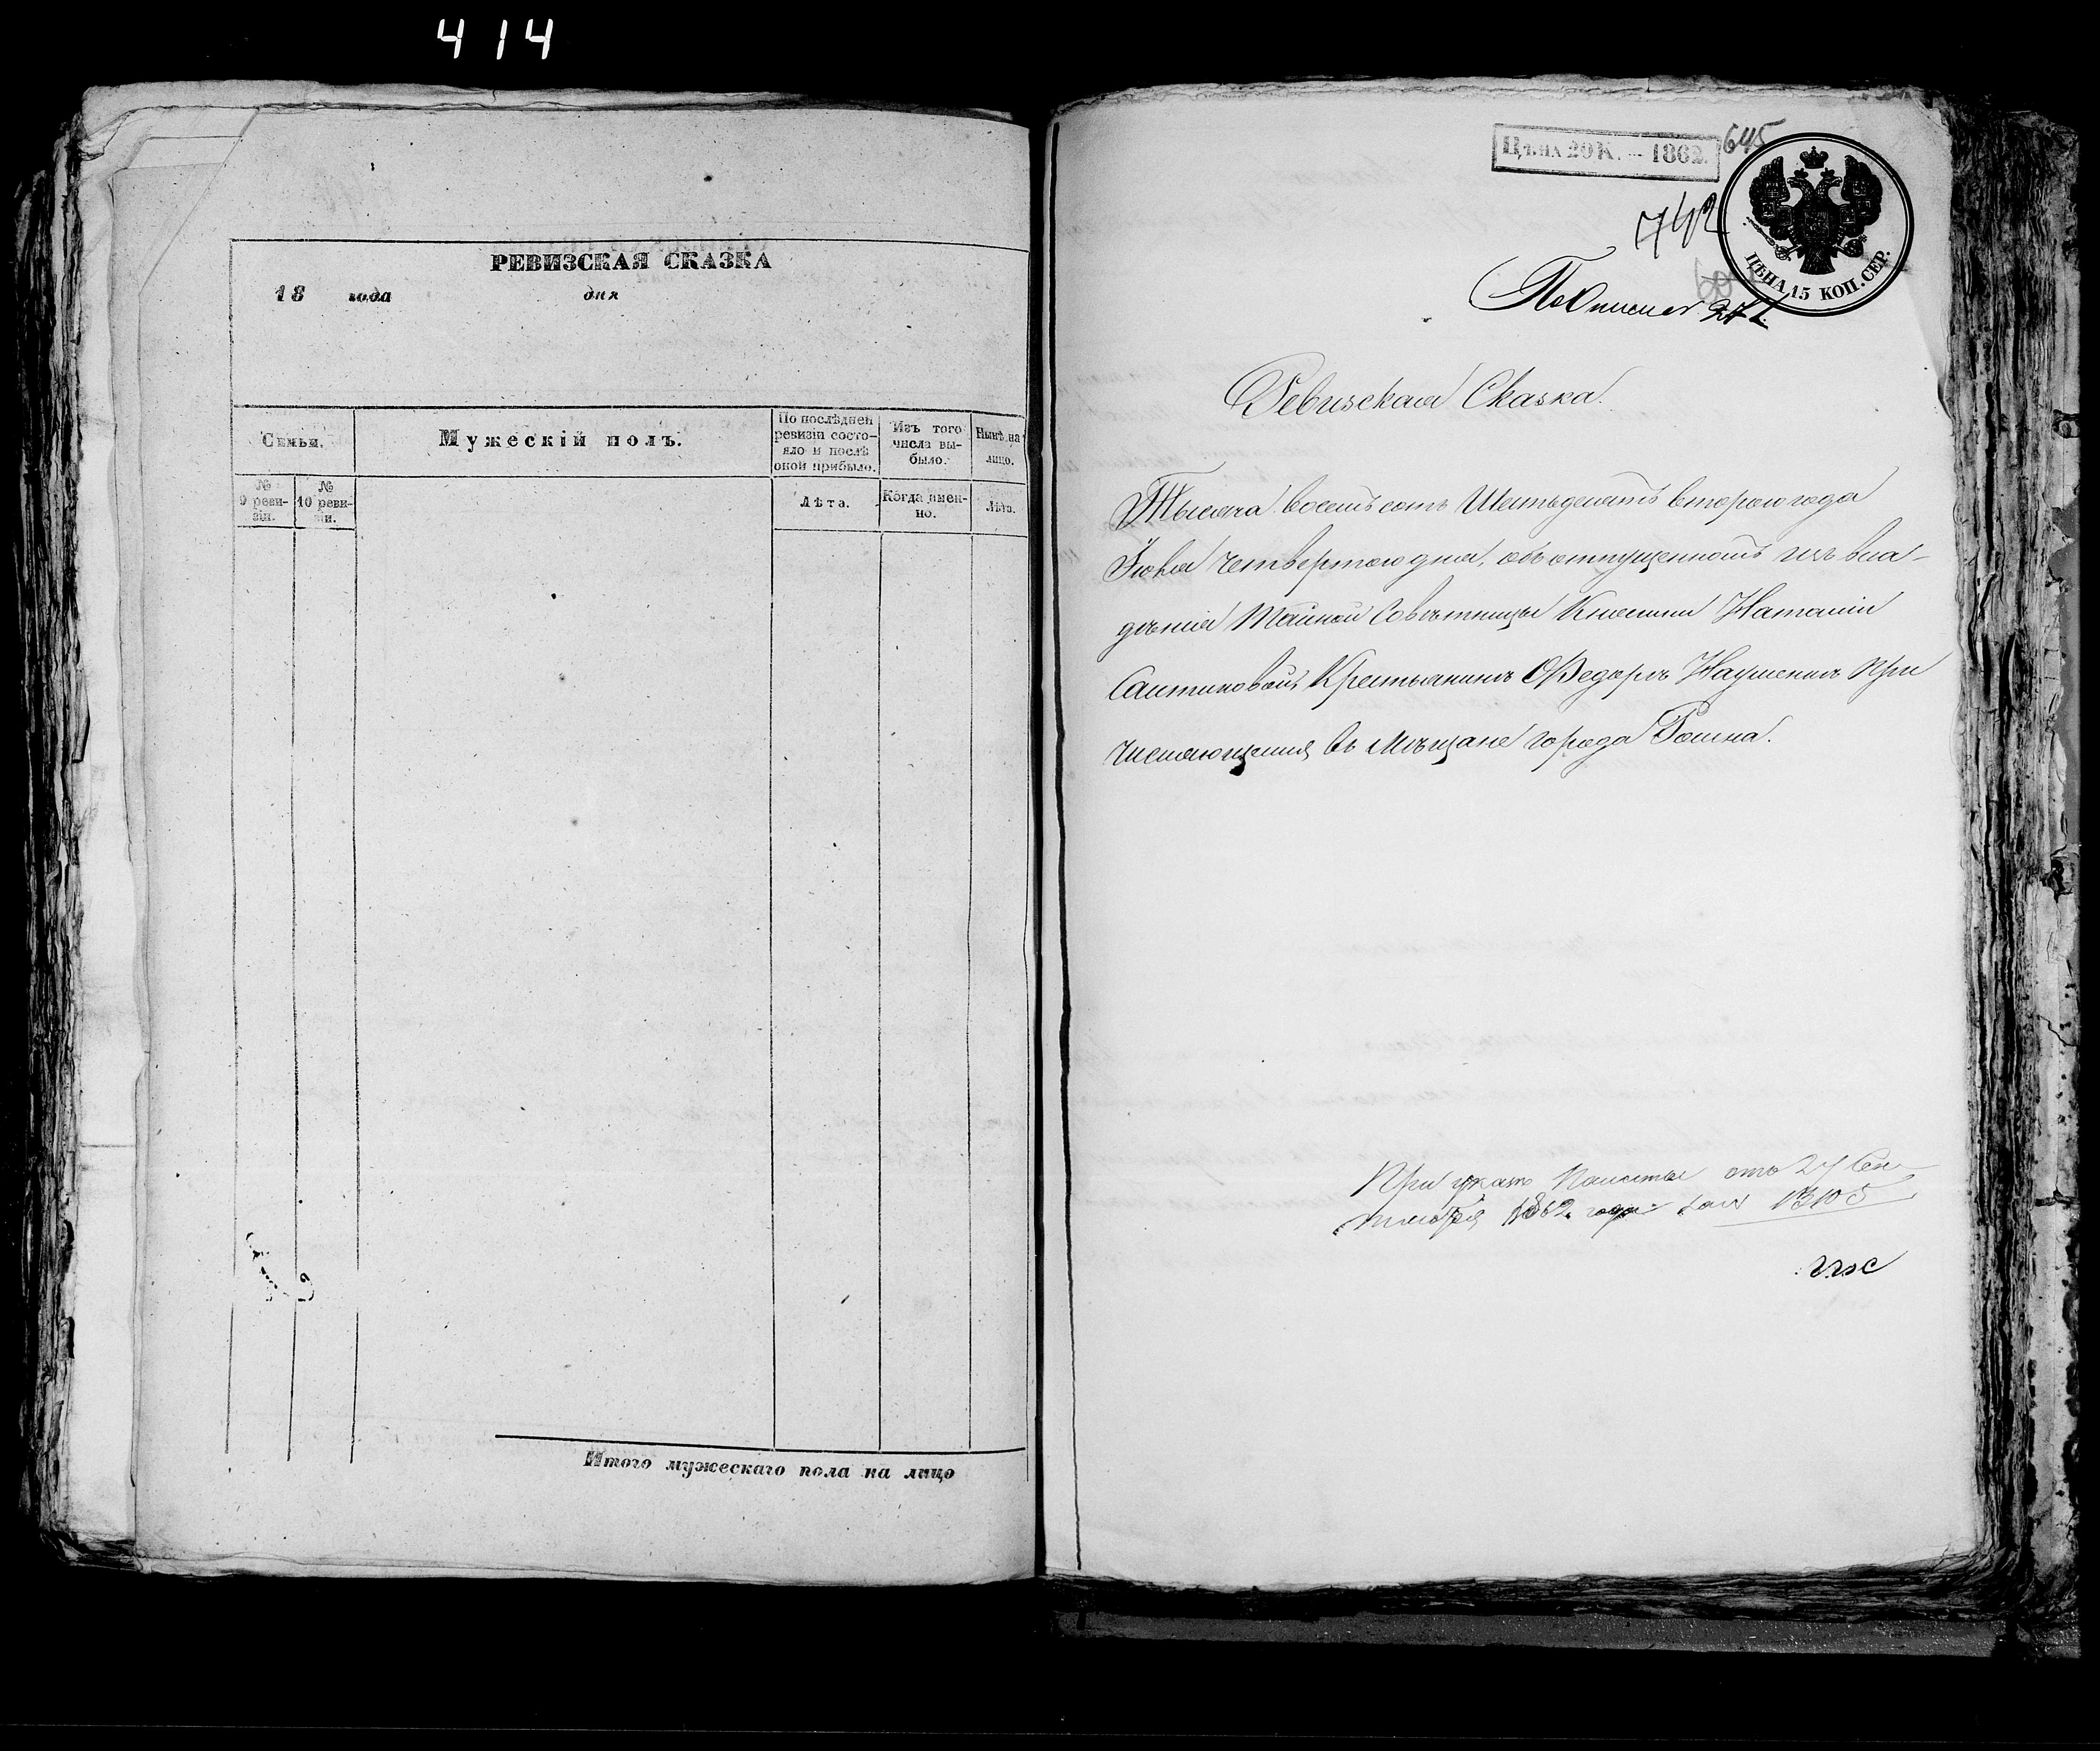 414
РЕВИЗСКАЯ СКАЗКА
18 года дня
Семьи.
Мужескій полъ.
По послѣдней ревизіи состояло и послѣ оной прибыло.
Изъ того числа выбыло.
Нынѣ на лицо.
№ 9 ревизіи.
№ 10 ревизіи.
Лѣта.
Когда именно.
Лѣта.
Итого мужескаго пола на лицо
Цѣна 20 К. — 1862.
645
742
ЦѢНА 15 КОП. СЕР.
По Описи
Ревизская Сказка.
Тысяча восемьсотъ Шестьдесятъ втораго года
Іюня четвертаго дня, объ отпущенномъ изъ вла-
дѣнія Тайной Совѣтницы Княгини Наталіи
Крестьянинъ Федоръ При
численющейся въ мѣщане города
При указѣ Палаты отъ 27 Сен-
тября 1862 года за № 13105